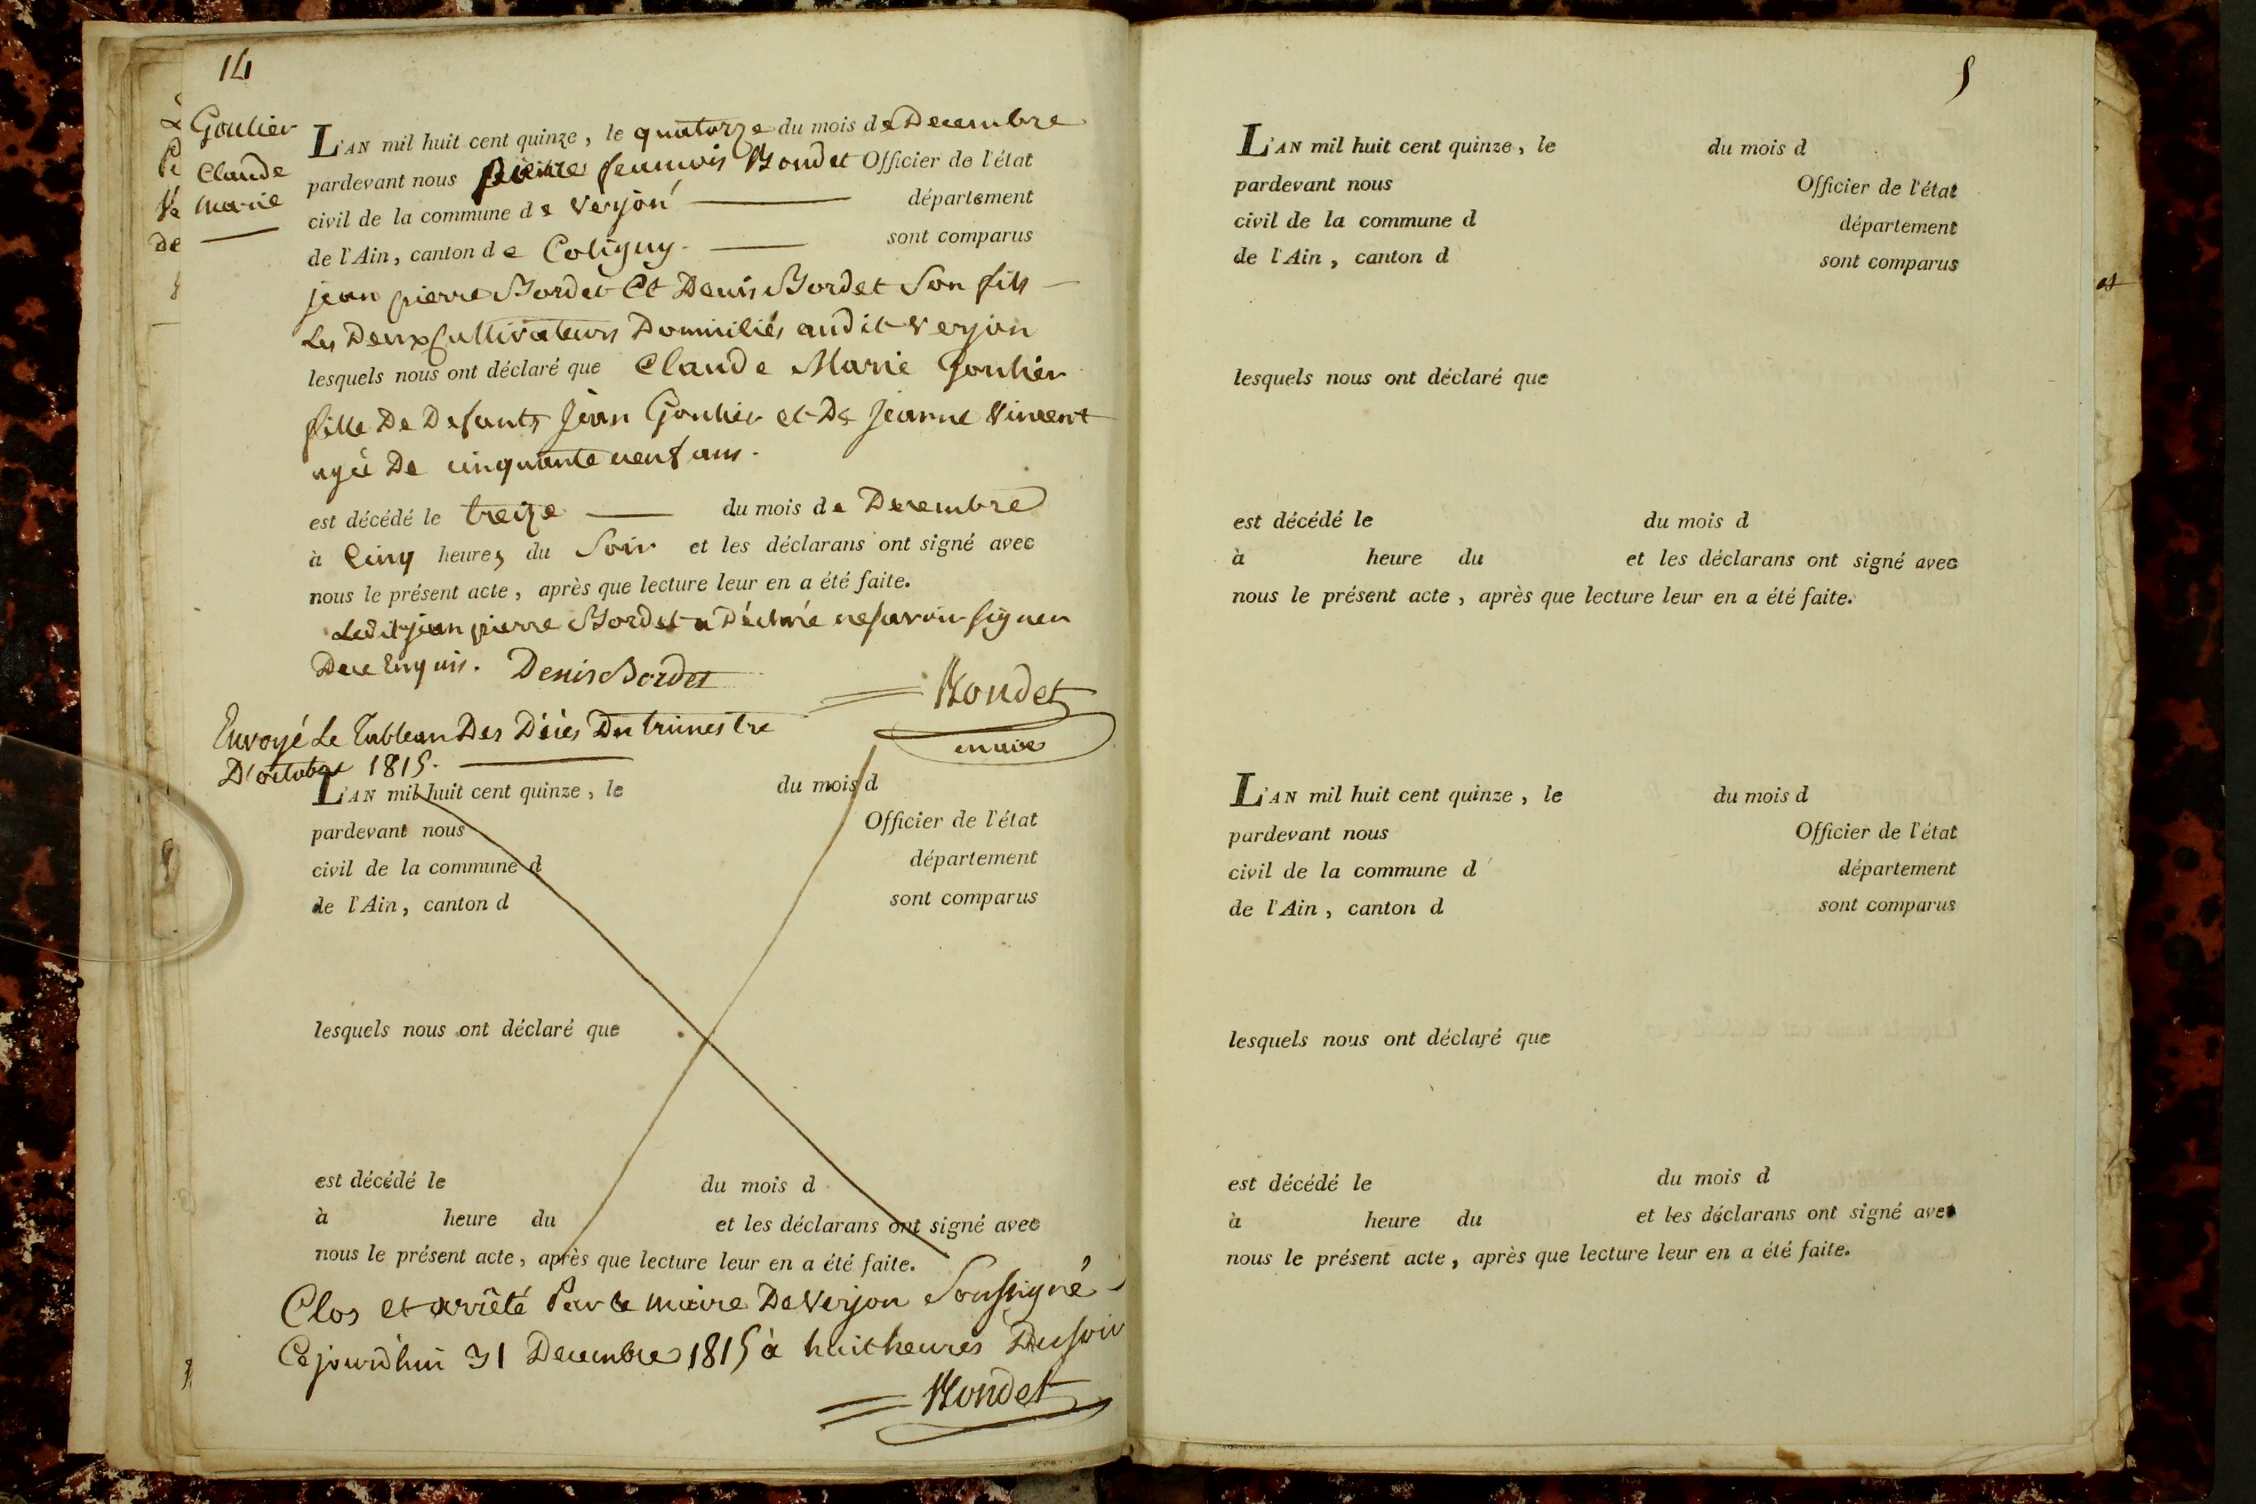 14
Goulier
Claude
marie
L'AN mil huit cent quinze, le quatorze du mois de Decembre
pardevant nous pierre francois Rondet Officier de l'état
civil de la commune de Verjon département
de l'Ain, canton de Coligny. sont comparus
jean pierre Bordet Et Denis Bordet Son fils
Les Deux Cultivateurs Domiciliés audit Verjon
lesquels nous ont déclaré que Claude Marie Goulier
fille De Defunts Jean Goulier et De Jeanne Vincent
agée De cinquante neuf ans.
est décédé le treize du mois de Decembre
à Cinq heures du Soir et les déclarans ont signé avec
nous le présent acte, après que lecture leur en a été faite.
Ledit jean pierre Bordet a Déclaré ne savoir signer
De ce Enquis. Denis Bordet
Rondet
maire
Envoyé Le Tableau Des Décès Du trimestre
D'octobre 1815.
L'AN mil huit cent quinze, le du mois d
pardevant nous Officier de l'état
civil de la commune d département
de l'Ain, canton d sont comparus
lesquels nous ont déclaré que
est décédé le du mois d
à heure du et les déclarans ont signé avec
nous le présent acte, après que lecture leur en a été faite.
Clos et arrêté Par le maire De Verjon Soussigné
Cejourd'hui 31 Decembre 1815 à huit heures Du soir
Rondet
5
L'AN mil huit cent quinze, le du mois d
pardevant nous Officier de l'état
civil de la commune d département
de l'Ain, canton d sont comparus
lesquels nous ont déclaré que
est décédé le du mois d
à heure du et les déclarans ont signé avec
nous le présent acte, après que lecture leur en a été faite.
L'AN mil huit cent quinze, le du mois d
pardevant nous Officier de l'état
civil de la commune d département
de l'Ain, canton d sont comparus
lesquels nous ont déclaré que
est décédé le du mois d
à heure du et les déclarans ont signé avec
nous le présent acte, après que lecture leur en a été faite.